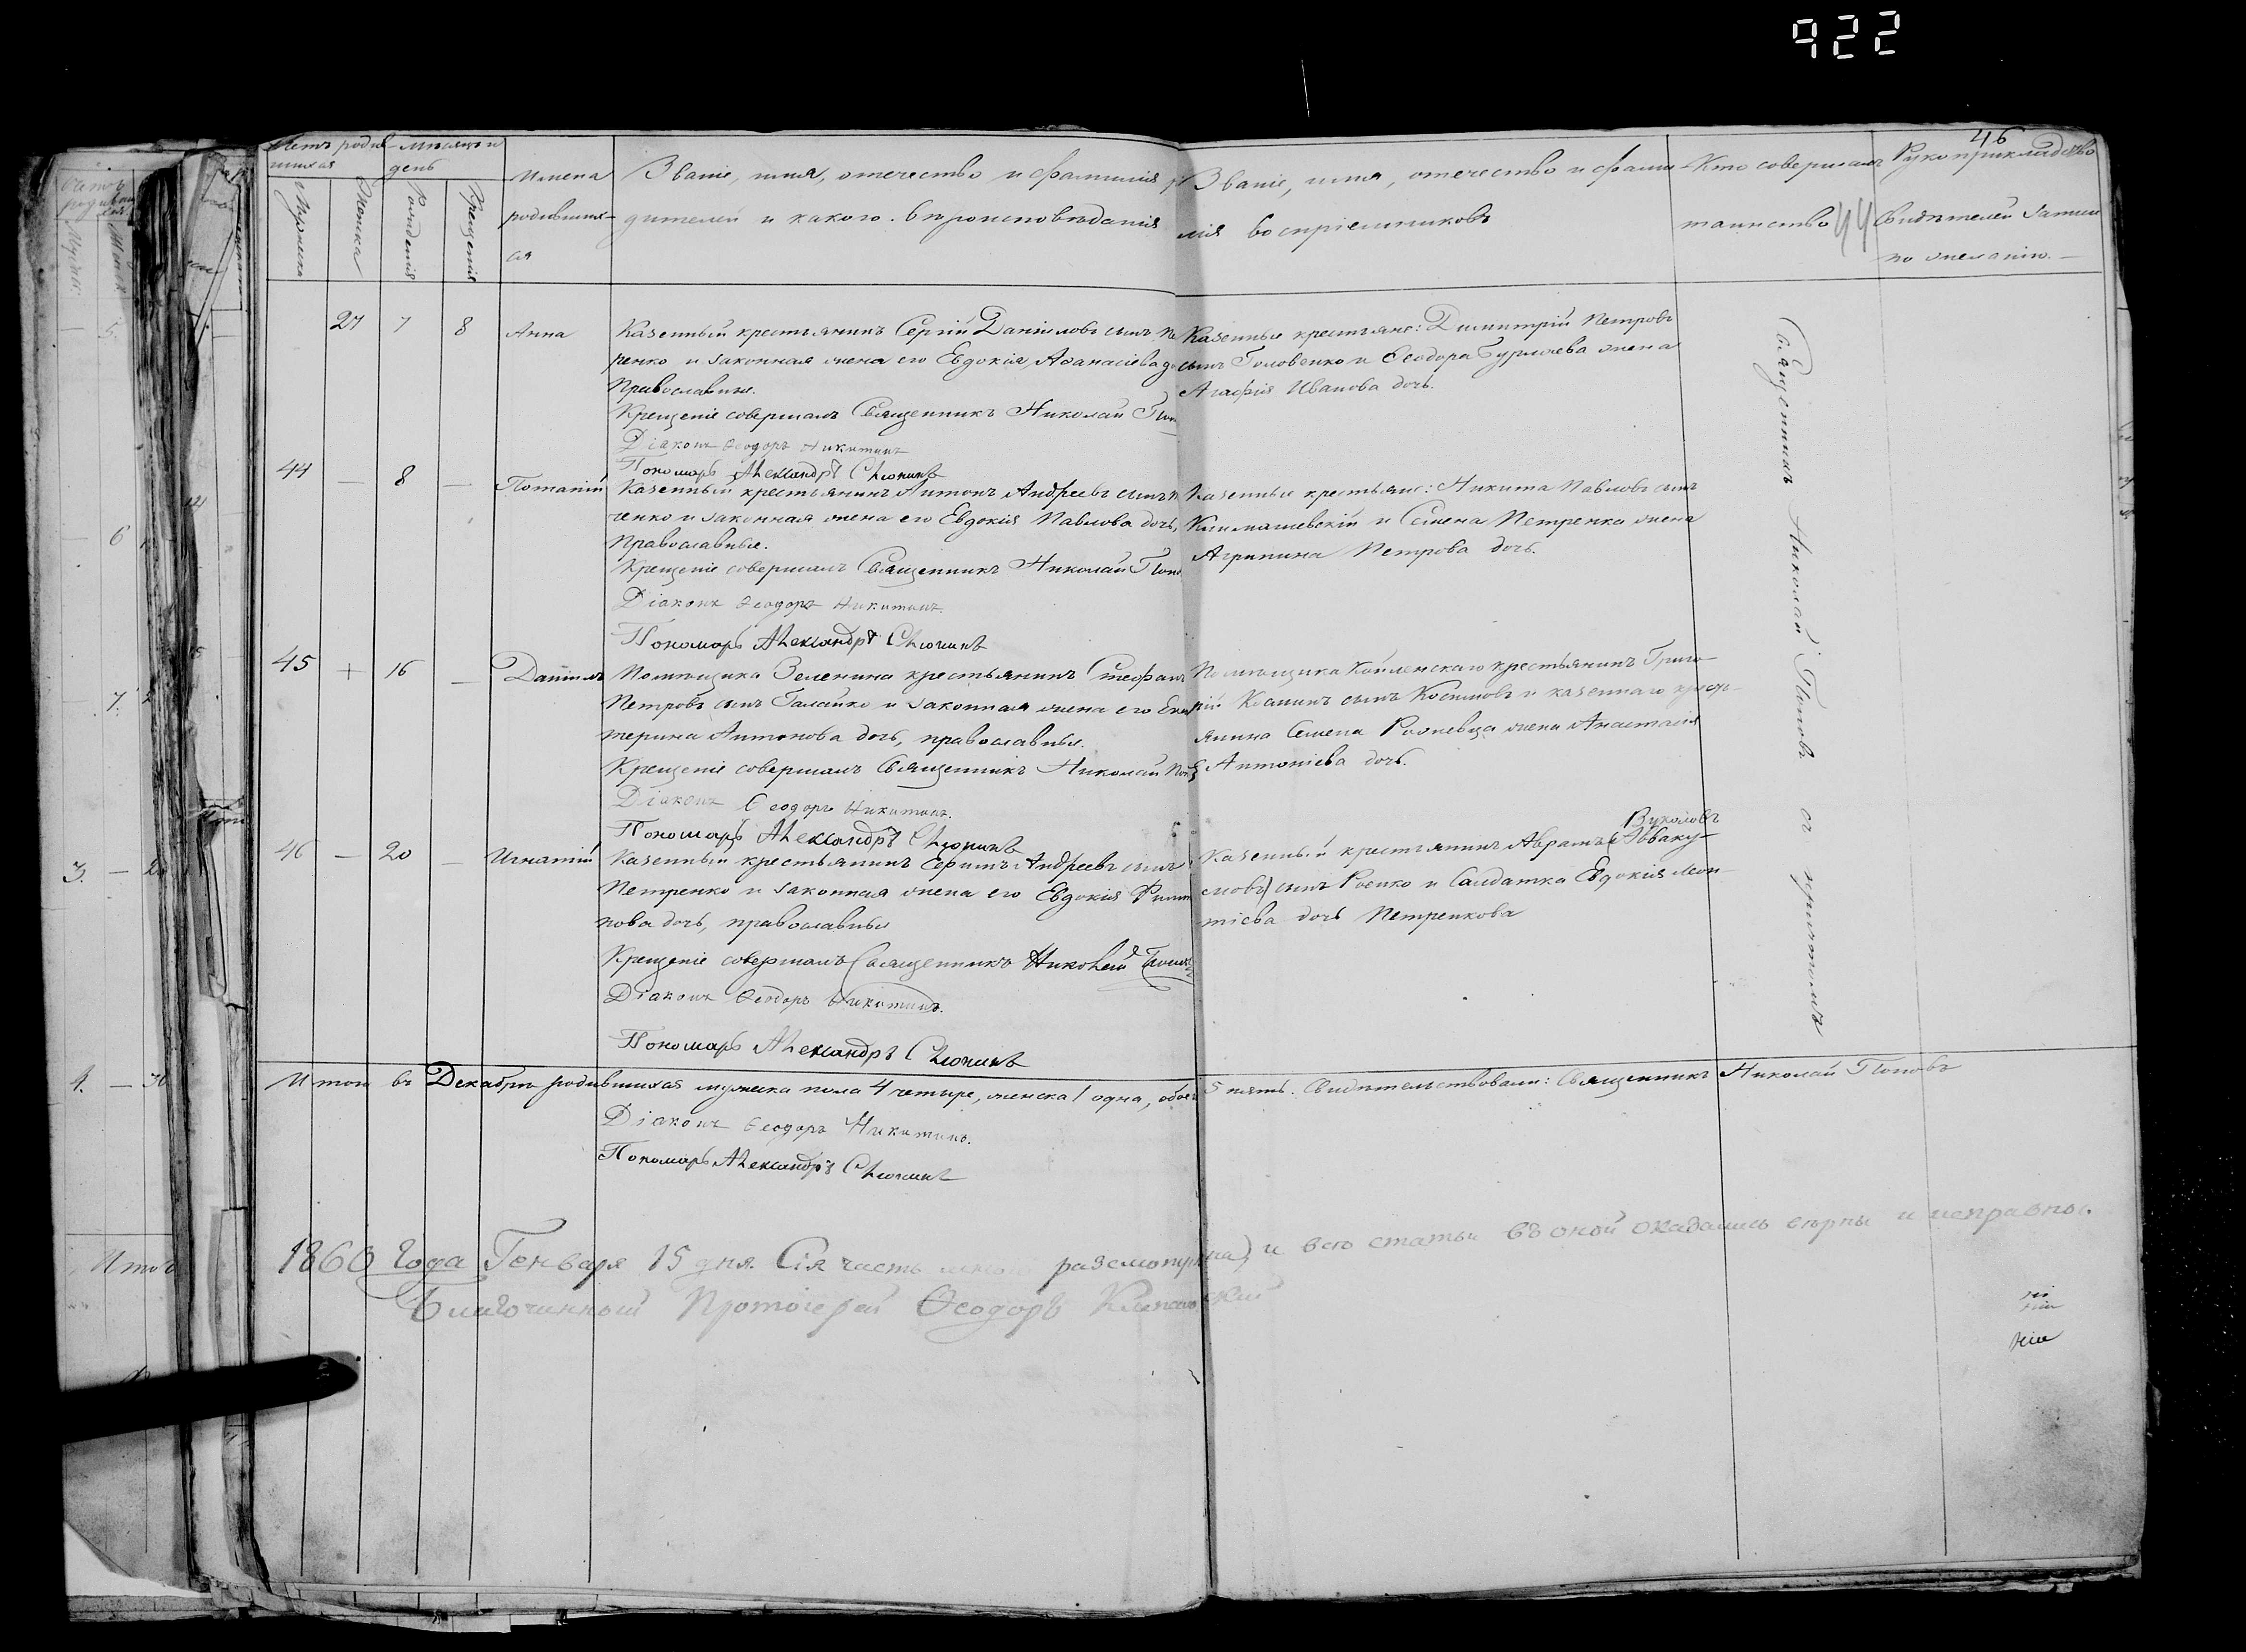 922
46
Счетъ родив-
шихся
Мѣсяцъ и
день
Мужска
Женска
Рожденія
Крещенія
Имена
родивших-
ся
Званіе, имя, отечество и фамилія
дителей и какого вѣроисповѣданія
Званіе, имя, отечество и фами-
лія воспріемниковъ
Кто совершалъ
таинство
Рукоприкладство
свидѣтелей записи
по желанію.
27 7 8 Анна
Казенный крестьянинъ Сергій Даніиловъ сынъ Пе
ренко и законная жена его Евдокія Аѳанасіева до
Православные.
Крещеніе совершалъ Священникъ Николай Поп
Діаконъ Ѳеодоръ Никитинъ
Пономарь Александръ
Казенные крестьяне: Димитрій Петровъ
сынъ Головенко и Ѳеодора жена
Агафія Иванова дочь.
44 — 8 — Потапій
Казенный крестьянинъ Антонъ Андреевъ сынъ
ченко и законная жена его Евдокія Павлова дочь,
Православные.
Крещеніе совершалъ Священникъ Николай Поп
Діаконъ Ѳеодоръ Никитинъ.
Пономарь Александръ
Казенные крестьяне: Никита Павловъ сынъ
и Семена Петренка жена
Агрипина Петрова дочь.
45 + 16 — Даніилъ
Помѣщика Зеленина крестьянинъ Стефанъ
Петровъ сынъ Галайко и законная жена его Ека
терина Антонова дочь, православные.
Крещеніе совершалъ Священникъ Николай Поп
Діаконъ Ѳеодоръ Никитинъ.
Пономарь Александръ
Помѣщика крестьянинъ Григо-
рій сынъ и казеннаго кресть-
янина Семена жена Анастасія
Антоніева дочь.
46 — 20 — Игнатій
Казенный крестьянинъ Андреевъ сынъ
Петренко и законная жена его Евдокія Филип
пова дочь, православные
Крещеніе совершалъ Священникъ Николай Поповъ
Діаконъ Ѳеодоръ Никитинъ.
Пономарь Александръ
Вуколовъ
Казенный крестьянинъ Авраамъ (Авваку-
мовъ) сынъ Роенко и Салдатка Евдокія Леон-
тіева дочь Петренкова
Священникъ Николай Поповъ съ причтомъ
Итого въ Декабрѣ родившихся мужска пола 4 четыре, женска 1 одна, обоего 5 пять. Свидѣтельствовали: Священникъ Николай Поповъ
Діаконъ Ѳеодоръ Никитинъ.
Пономарь Александръ
1860 Года Генваря 15 дня. Сія часть мною разсмотрѣна, и всѣ статьи въ оной оказались вѣрны и исправны.
Благочинный Протоіерей Ѳеодоръ